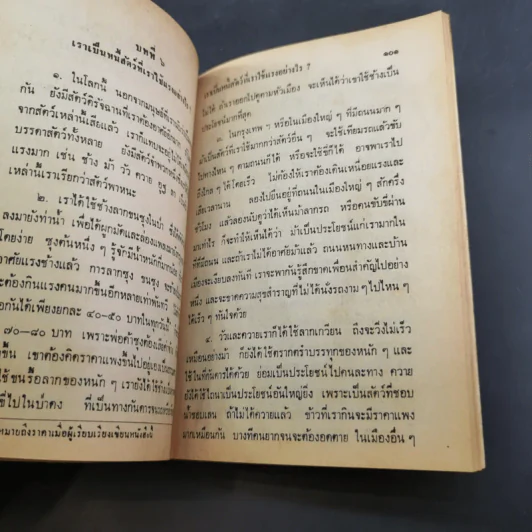 บทที่ ๖
เราเป็นหนี้สัตว์ที่เราใช้แรงอย่างไร
๑. ในโลกนี้ นอกจากมนุษย์ที่เรา
กัน ยังมีสัตว์ดิรัจฉานที่เราต้องอาศัย
จากสัตว์เหล่านี้เสียแล้ว เราก็แทบจะอยู่
บรรดาสัตว์ทั้งหลาย ยังมีสัตว์จำพวกหนึ่ง
แรงมาก เช่น ช้าง ม้า วัว ควาย อูฐ ลา
เหล่านี้เราเรียกว่าสัตว์พาหนะ
๒. เราได้ใช้ช้างลากขนซุงในป่า
ลงมายังท่าน้ำ เพื่อได้ผูกมัดและล่องแพลง
โดยง่าย ซุงต้นหนึ่ง ๆ รู้จักมีน้ำหนัก
อาศัยแรงช้างแล้ว การลากซุง ขนซุง
จะต้องกินแรงคนมากขึ้นอีกหลายเท่าพันทวี
อกันได้เพียงยกละ ๔๐–๕๐ บาทในทุกวันนี้
๗๐–๘๐ บาท เพราะพ่อค้าซุงต้อง
ขึ้น เขาต้องคิดราคาแพงขึ้นไปอยู่เอง
ใช้ขนรื้อลากของหนัก ๆ เรายังได้ใช้ช้าง
ขี่ไปในป่าดง ที่เป็นทางกันดาร
หมายถึงราคาเมื่อผู้เรียบเรียงเขียนหนังสือนี้
๑๐๑
เราเป็นหนี้สัตว์ที่เราใช้แรงอย่างไร ?
ไม่ได้ ถ้าเราออกไปดูตามหัวเมือง จะเห็นได้ว่าเขาใช้ช้างเป็น
ประโยชน์มากที่สุด
๓. ในกรุงเทพ ฯ หรือในเมืองใหญ่ ๆ ที่มีถนนมาก ๆ
ม้าเป็นสัตว์ที่เราใช้มากกว่าสัตว์อื่น ๆ จะใช้เทียมรถแล้วขับ
ไปทางไหน ๆ ตามถนนก็ได้ หรือจะใช้ขี่ก็ได้ อาจพาเราไป
ถึงไกล ๆ ได้โดยเร็ว ไม่ต้องให้เราต้องเดินเหนื่อยแรงและ
เสียเวลานาน ลองไปยืนอยู่ที่ถนนในเมืองใหญ่ ๆ สักครึ่ง
ชั่วโมง แล้วลองนับดูว่าได้เห็นม้าลากรถ หรือคนขับขี่ผ่าน
มาเท่าใด ก็จะทำให้เห็นได้ว่า ม้าเป็นประโยชน์แก่เรามากใน
ที่ที่มีถนน และถ้าเราไม่ได้อาศัยม้าแล้ว ถนนหนทางและบ้าน
เมืองจะเงียบลงทันที เราจะพากันรู้สึกขาดเพื่อนสำคัญไปอย่าง
หนึ่ง และจะขาดความสุขสำราญที่ไม่ได้นั่งรถงาม ๆ ไปไหน ๆ
ได้เร็ว ๆ ทันใจด้วย
๔. วัวและควายเราก็ได้ใช้ลากเกวียน ถึงจะวิ่งไม่เร็ว
เหมือนอย่างม้า ก็ยังได้ใช้ตรากตรำบรรทุกของหนัก ๆ และ
ใช้ในที่กันดารได้ด้วย ย่อมเป็นประโยชน์ไปคนละทาง ควาย
ยังใช้ได้ไถนาเป็นประโยชน์อันใหญ่ยิ่ง เพราะเป็นสัตว์ที่ชอบ
น้ำชอบเลน ถ้าไม่ได้ควายแล้ว ข้าวที่เรากินจะมีราคาแพง
มากเหมือนกัน บางทีคนยากจนจะต้องอดตาย ในเมืองอื่น ๆ